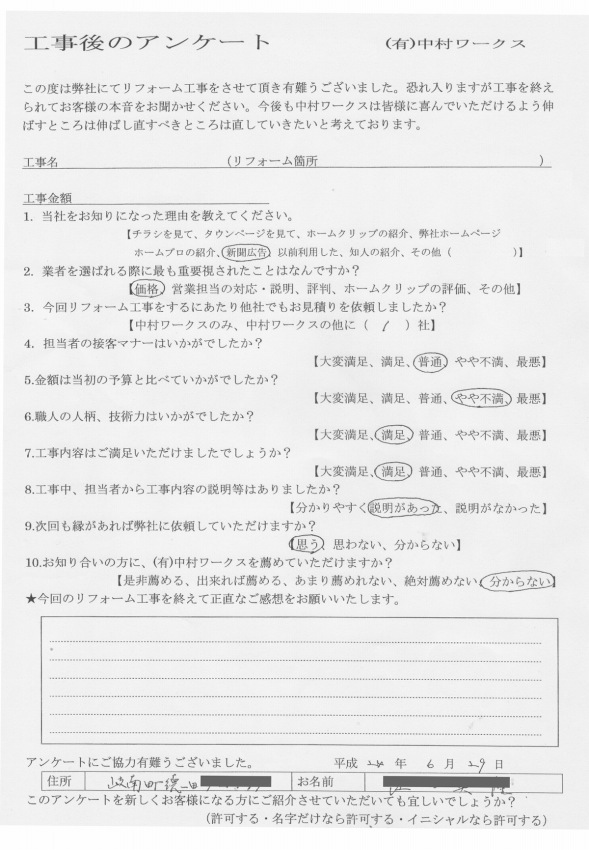 工事後のアンケート (有)中村ワークス
この度は弊社にてリフォーム工事をさせて頂き有難うございました。恐れ入りますが工事を終え
られてお客様の本音をお聞かせください。今後も中村ワークスは皆様に喜んでいただけるよう伸
ばすところは伸ばし直すべきところは直していきたいと考えております。
工事名 (リフォーム箇所 )
工事金額
1. 当社をお知りになった理由を教えてください。
【チラシを見て、タウンページを見て、ホームクリップの紹介、弊社ホームページ
ホームプロの紹介、新聞広告、以前利用した、知人の紹介、その他（ ）】
2. 業者を選ばれる際に最も重要視されたことはなんですか？
【価格、営業担当の対応・説明、評判、ホームクリップの評価、その他】
3. 今回リフォーム工事をするにあたり他社でもお見積りを依頼しましたか？
【中村ワークスのみ、中村ワークスの他に（ 1 ）社】
4. 担当者の接客マナーはいかがでしたか？
【大変満足、満足、普通、やや不満、最悪】
5.金額は当初の予算と比べていかがでしたか？
【大変満足、満足、普通、やや不満、最悪】
6.職人の人柄、技術力はいかがでしたか？
【大変満足、満足、普通、やや不満、最悪】
7.工事内容はご満足いただけましたでしょうか？
【大変満足、満足、普通、やや不満、最悪】
8.工事中、担当者から工事内容の説明等はありましたか？
【分かりやすく説明があった、説明がなかった】
9.次回も縁があれば弊社に依頼していただけますか？
【思う、思わない、分からない】
10.お知り合いの方に、(有)中村ワークスを薦めていただけますか？
【是非薦める、出来れば薦める、あまり薦めれない、絶対薦めない、分からない】
★今回のリフォーム工事を終えて正直なご感想をお願いいたします。
アンケートにご協力有難うございました。 平成 24 年 6 月 29 日
住所 岐南町徳田 お名前
このアンケートを新しくお客様になる方にご紹介させていただいても宜しいでしょうか？
（許可する・名字だけなら許可する・イニシャルなら許可する）